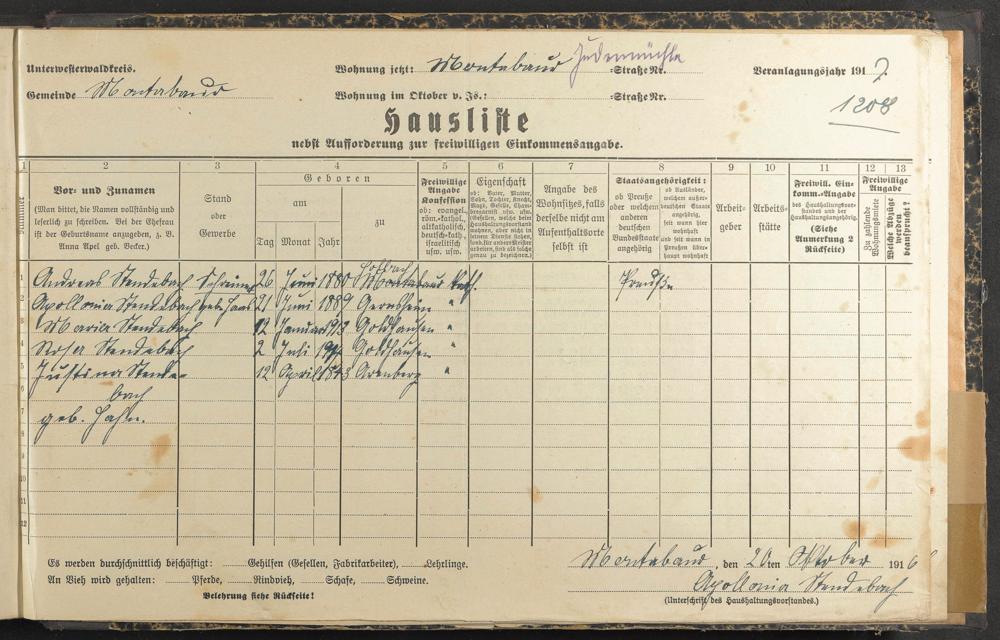 Unterwesterwaldkreis.
Wohnung jetzt: Montabaur Judenmühle Straße Nr.
Veranlagungsjahr 1917.
Gemeinde Montabaur
Wohnung im Oktober v. Js.: Straße Nr.
1208
Hausliste
nebst Aufforderung zur freiwilligen Einkommensangabe.
1 2 3 4 5 6 7 8 9 10 11 12 13
Nummer
Vor- und Zunamen
(Man bittet, die Namen vollständig und
leserlich zu schreiben. Bei der Ehefrau
ist der Geburtsname anzugeben, z. B.
Anna Apel geb. Becker.)
Stand
oder
Gewerbe
Geboren
am
Tag Monat Jahr
zu
Freiwillige
Angabe
Konfession
ob: evangel.,
röm.-kathol.,
altkatholisch,
deutsch-kath.,
israelitisch
usw. usw.
Eigenschaft
ob: Vater, Mutter,
Sohn, Tochter, Knecht,
Magd, Geselle,
Angabe des
Wohnsitzes, falls
derselbe nicht am
Aufenthaltsorte
selbst ist
Staatsangehörigkeit:
ob Preuße
oder welchem
anderen
deutschen
Bundesstaate
angehörig
ob Ausländer,
welchem außer-
deutschen Staate
angehörig,
seit wann hier
wohnhaft
und seit wann in
Preußen über-
haupt wohnhaft
Arbeit-
geber
Arbeits-
stätte
Freiwill. Ein-
komm.-Angabe
des Haushaltungsvor-
standes und der
Haushaltungsangehörig.
(Siehe
Anmerkung 2
Rückseite)
Freiwillige
Angabe
Zu zahlende
Wohnungsmiete
Welche Abzüge
werden
beansprucht?
1 Andreas Stendebach Schreiner 26 Juni 1880 Holbach Montabaur kath. Preuße
2 Apollonia Stendebach geb. Haas 21 Juni 1889 Gernsheim "
3 Maria Stendebach 12 Januar 1913 Goldhausen "
4 Rosa Stendebach 2 Juli 1914 Goldhausen "
5 Justina Stende- 12 April 1843 Arenberg "
6 bach
7 geb. Hahn.
8
9
10
11
12
Es werden durchschnittlich beschäftigt: Gehilfen (Gesellen, Fabrikarbeiter), Lehrlinge.
An Vieh wird gehalten: Pferde, Rindvieh, Schafe, Schweine.
Belehrung siehe Rückseite!
Montabaur, den 20ten Oktober 1916
Apollonia Stendebach
(Unterschrift des Haushaltungsvorstandes.)